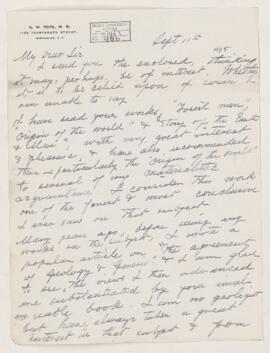 G. W. POPE, M. D.
1103 THIRTEENTH STREET,
WASHINGTON, D. C.
Sept 11th 1895
My dear Sir
I send you the enclosed, thinking
it may, perhaps, be of interest. Whether
it is to be relied upon of course I
am unable to say
I have read your works, "Fossil men",
"Origin of the world" & "Story of the Earth
& Man" with very great interest
& pleasure, & have also recommended
them & particularly the "Origin of the World"
to several of my materialistic
acquaintance. I consider this work
one of the finest & most conclusive
I ever saw on that subject
Many years ago, before seeing any
works on the subject, I wrote a
popular article on "the agreement
of Geology & Genesis" & I am glad
to see the views I then advanced
are substantiated by your
book. I am no geologist
but have always taken a great
interest in that subject & from